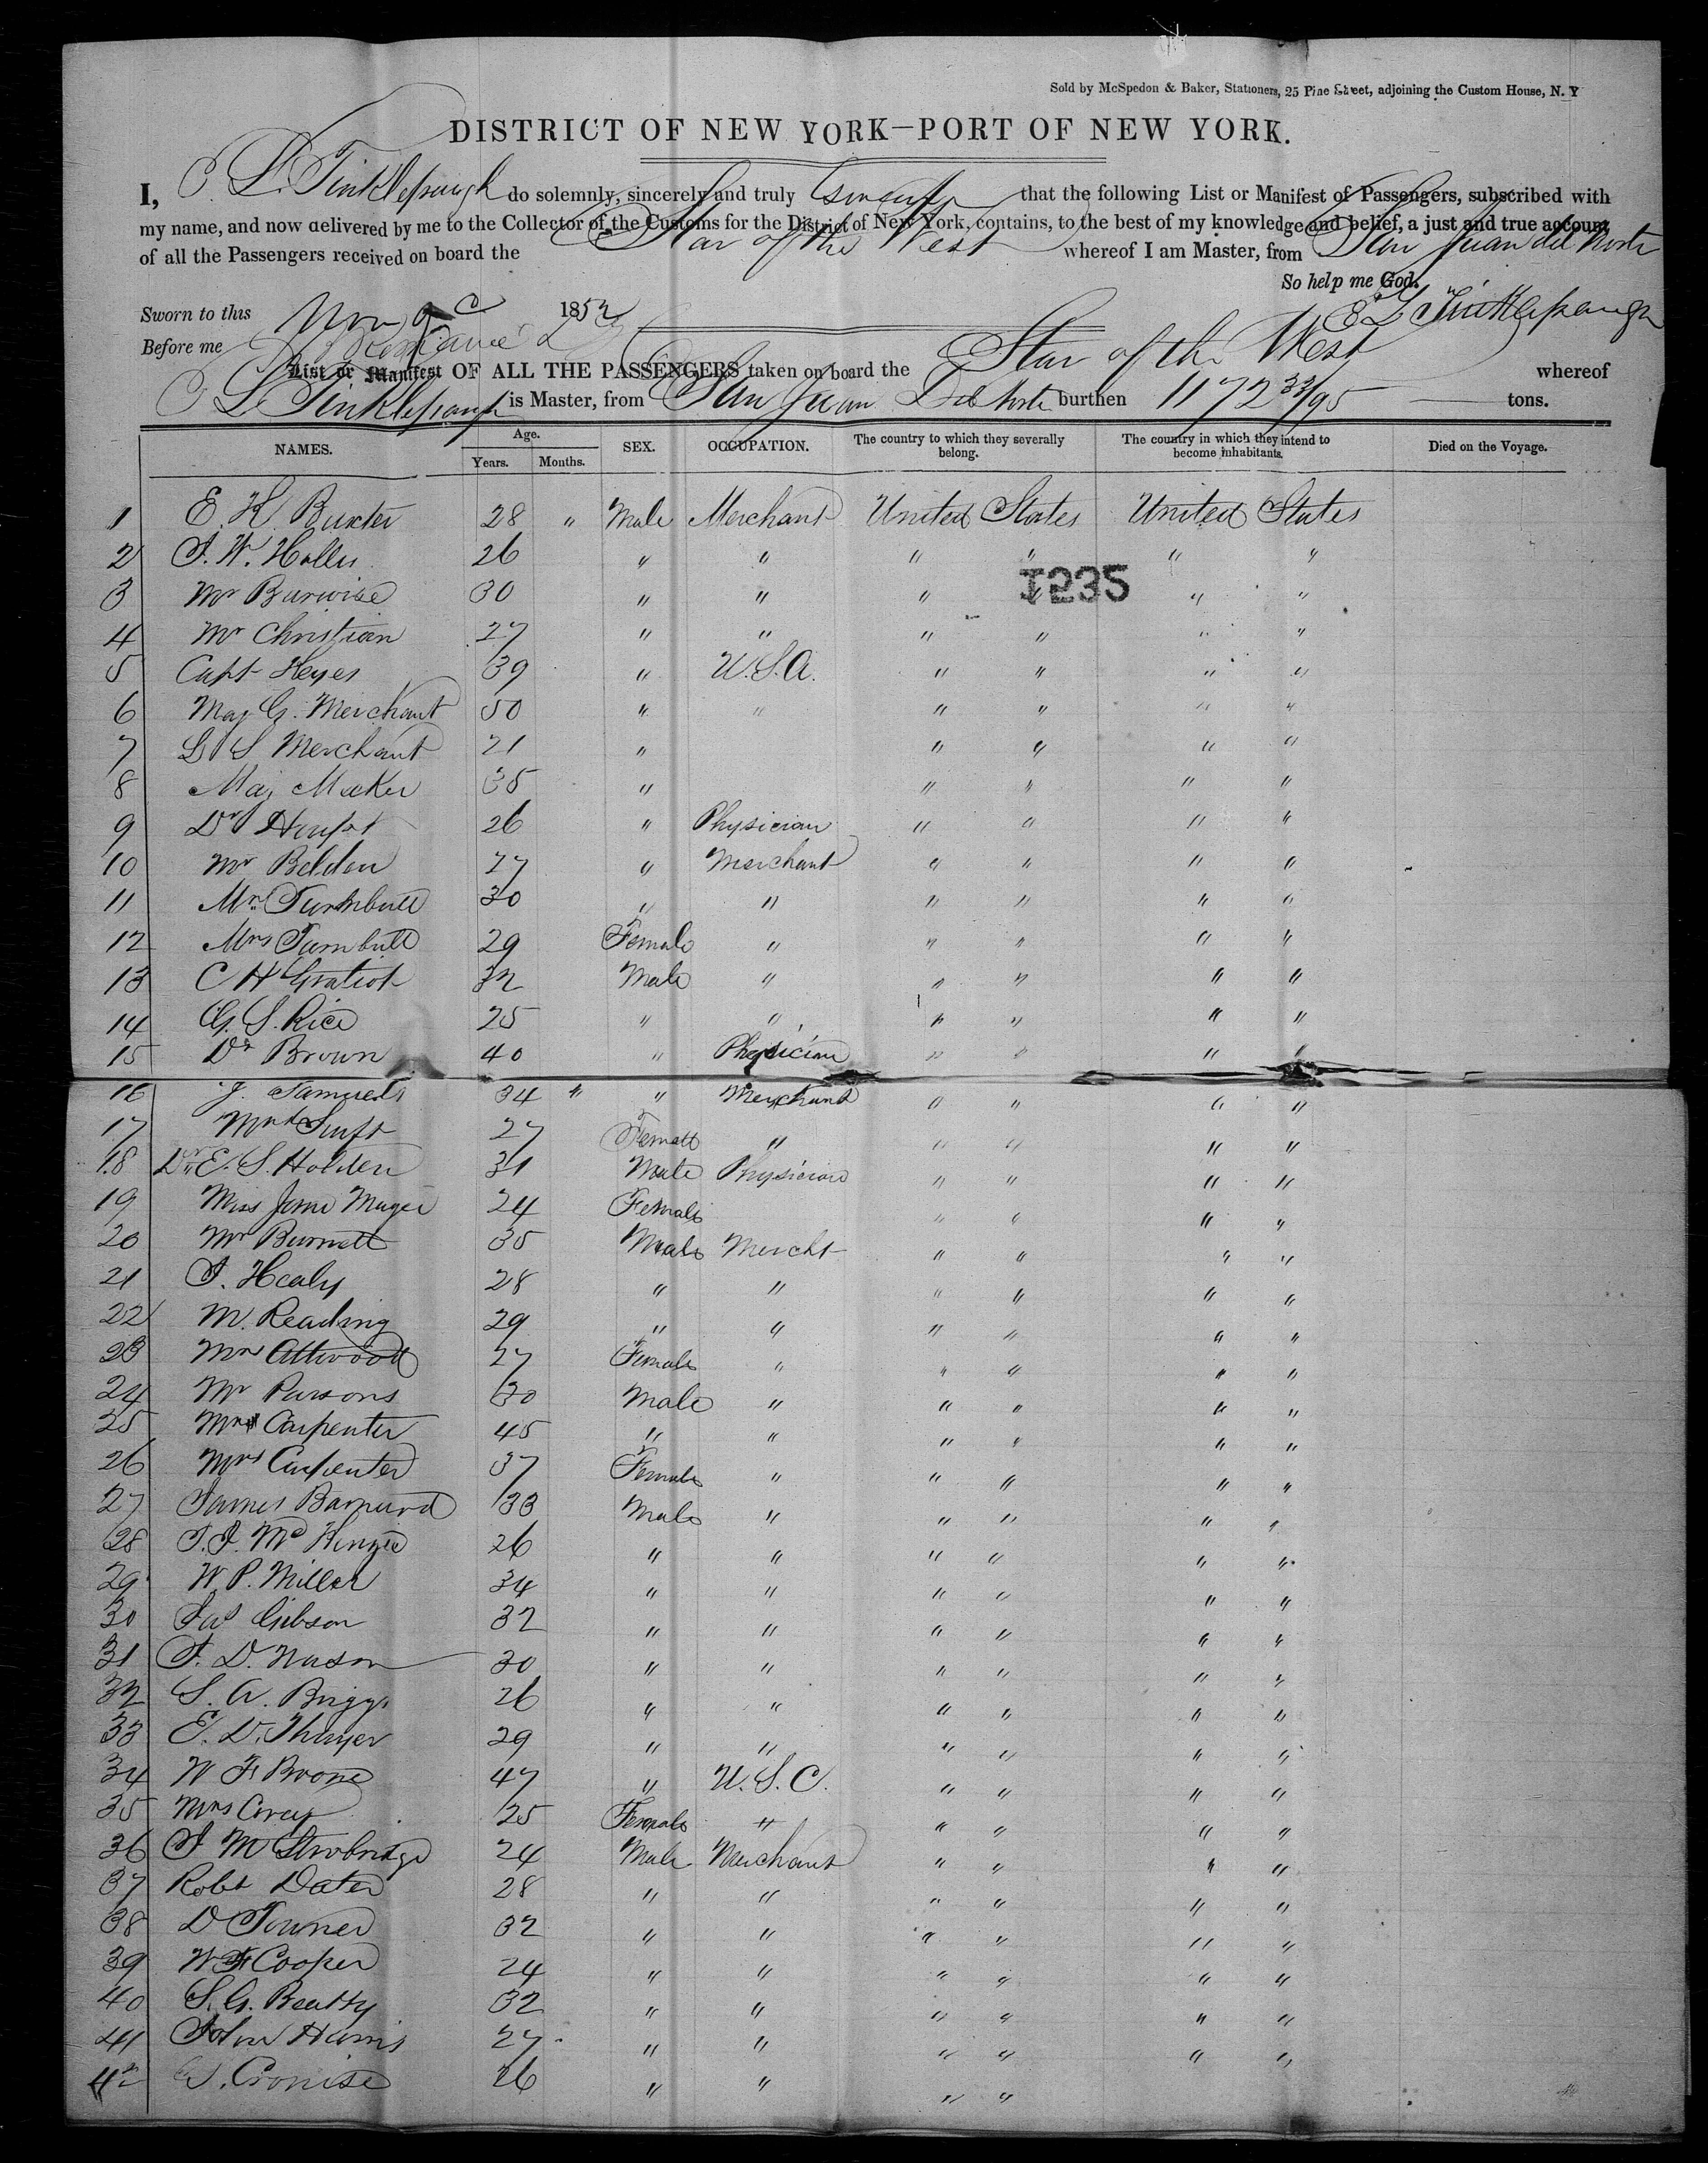 Sold by McSpedon & Baker, Stationers, 25 Pine Street, adjoining the Custom House, N. Y
DISTRICT OF NEW YORK—PORT OF NEW YORK.
I, E L. Tinklepaugh do solemnly, sincerely and truly swear that the following List or Manifest of Passengers, subscribed with
my name, and now delivered by me to the Collector of the Customs for the District of New York, contains, to the best of my knowledge and belief, a just and true account
of all the Passengers received on board the Star of the West whereof I am Master, from San Juan del Norte
So help me God.
Sworn to this Nov 9 1852 E L Tinklepaugh
Before me
List or Manifest OF ALL THE PASSENGERS taken on board the Star of the West whereof
E L Tinklepaugh is Master, from San Juan Del Norte burthen 1172 33/95 tons.
NAMES. Age. Years. Months. SEX. OCCUPATION. The country to which they severally belong. The country in which they intend to become inhabitants. Died on the Voyage.
1 E. K. Buxter 28 " Male Merchant United States United States
2 J. W. Hollis 26 " " " " " "
1235
3 Mr Burwise 30 " " " " " "
4 Mr Christian 27 " " " " " "
5 Capt Heyes 39 " U.S.A. " " " "
6 Maj G. Merchant 50 " " " " " "
7 S Merchant 21 " " " " "
8 Maj Meeker 35 " " " " "
9 Dr 26 " Physician " " " "
10 Mr Belden 27 " Merchant " " " "
11 Mr. Turnbull 30 " " " " " "
12 Mrs Turnbull 29 Female " " " " "
13 C H Gratiot 32 Male " " " " "
14 G. S. Rice 25 " " " " " "
15 Dr Brown 40 " Physician " " " "
16 J. Samuels 34 " " Merchant " " " "
17 Mrs Swift 27 Female " " " " "
18 Dr E. S. Holden 31 Male Physician " " " "
19 Miss Jane Magee 24 Female " " " "
20 Mr Burnett 35 Male Mercht " " " "
21 J. Healy 28 " " " " " "
22 M. Reading 29 " " " " " "
23 Mrs Attwood 27 Female " " " " "
24 Mr Parsons 30 Male " " " " "
25 Mr Carpenter 45 " " " " " "
26 Mrs Carpenter 37 Female " " " " "
27 James Barnard 33 Male " " " " "
28 J. J. McKenzie 26 " " " " " "
29 W. P. Miller 34 " " " " " "
30 Jas Gibson 32 " " " " " "
31 J. D. Nason 30 " " " " " "
32 S. A. Briggs 26 " " " " " "
33 E. D. Thayer 29 " " " " " "
34 W F Boone 47 " U.S.C. " " " "
35 Mrs Coray 25 Female " " " " "
36 J M Strobridge 24 Male Merchant " " " "
37 Robt Dater 28 " " " " " "
38 D Towner 32 " " " " " "
39 W F Cooper 24 " " " " " "
40 S. G. Beatty 32 " " " " " "
41 John Harris 27 " " " " " "
42 Cronise 26 " " " "